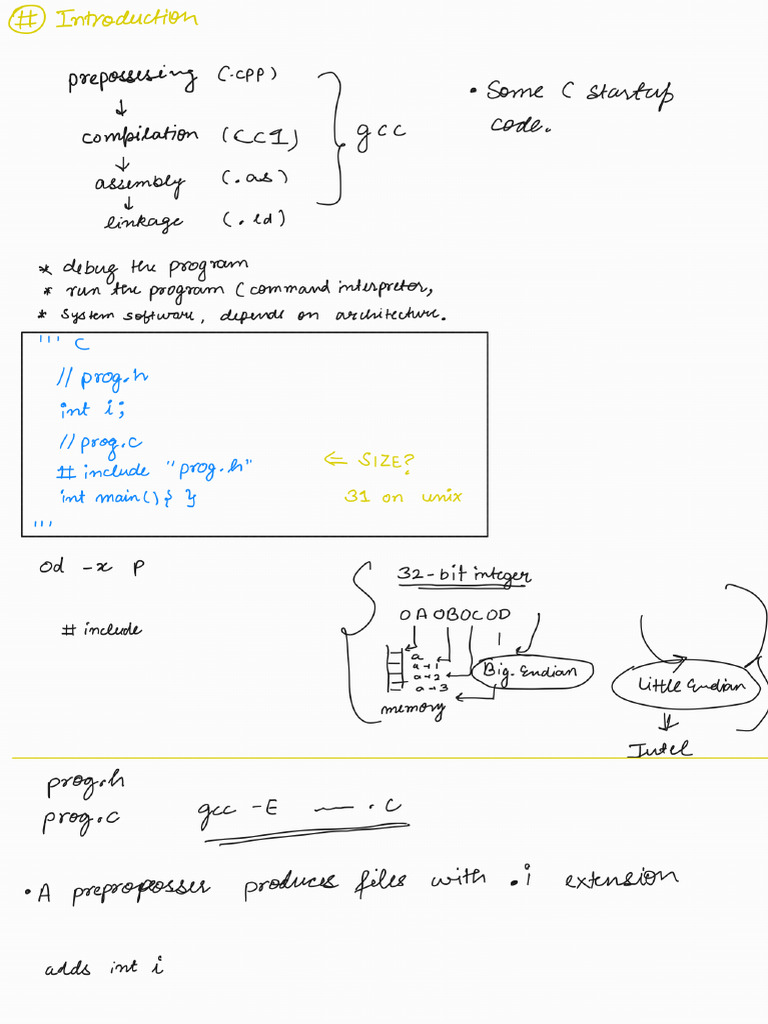 # Introduction
prepossesing (.cpp)
↓
compilation (CC1)
↓
assembly (.as)
↓
linkage (.ld)
gcc
• Some C startup
code.
* debug the program
* run the program (command interpretor,
* System software, depends on architecture.
''' C
// prog.h
int i;
// prog.c
# include "prog.h"
int main() { }
'''
⇐ SIZE?
31 on unix
od -x p
# include
32-bit integer
0A0B0C0D
a
a+1
a+2
a+3
memory
Big. Endian
Little Endian
Intel
prog.h
prog.c
gcc -E — . C
• A preproposser produces files with .i extension
adds int i